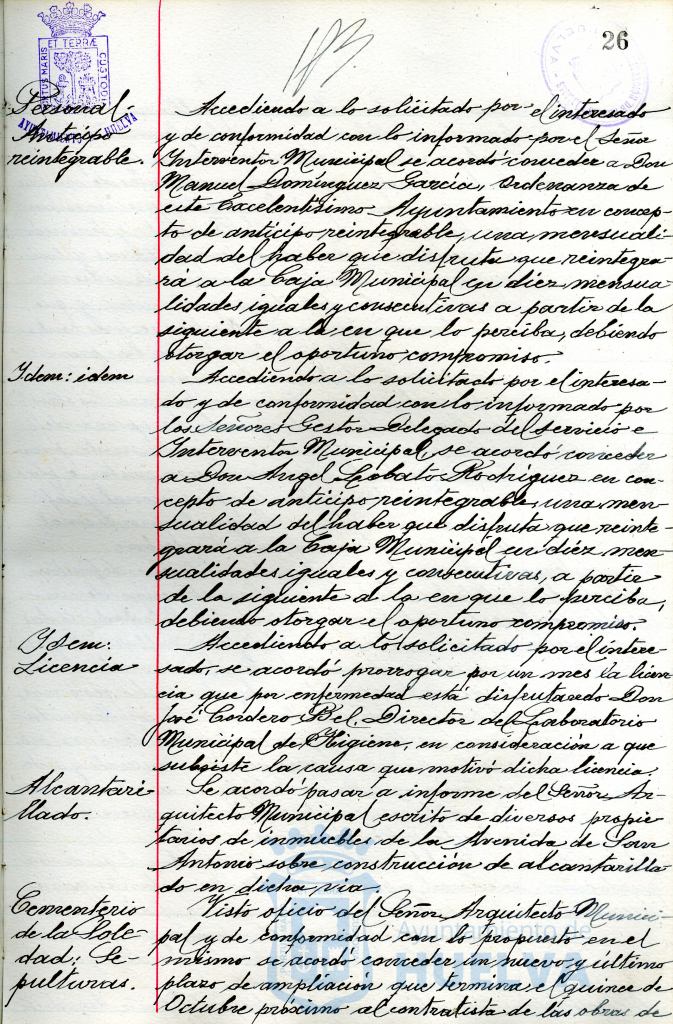 26
183.
ET TERRÆ
PORTUS MARIS
CUSTODIA
AYUNTAMIENTO HUELVA
Personal-
Anticipo
reintegrable.
Accediendo a lo solicitado por el interesado
y de conformidad con lo informado por el Señor
Interventor Municipal se acordó conceder a Don
Manuel Domínguez García, Ordenanza de
este Excelentísimo Ayuntamiento en concep-
to de anticipo reintegrable, una mensuali-
dad del haber que disfruta que reintegra-
rá a la Caja Municipal en diez mensua-
lidades iguales y consecutivas a partir de la
siguiente a la en que lo perciba, debiendo
otorgar el oportuno compromiso.
Idem: idem
Accediendo a lo solicitado por el interesa-
do y de conformidad con lo informado por
los Señores Gestor Delegado del servicio e
Interventor Municipal, se acordó conceder
a Don Angel Lobato Rodríguez en con-
cepto de anticipo reintegrable, una men-
sualidad del haber que disfruta que reinte-
grará a la Caja Municipal en diéz men-
sualidades iguales y consecutivas, a partir
de la siguiente a la en que lo perciba,
debiendo otorgar el oportuno compromiso.
Idem:
Licencia
Accediendo a lo solicitado por el intere-
sado, se acordó prorrogar por un mes la licen-
cia que por enfermedad está disfrutando Don
José Cordero Bel, Director del Laboratorio
Municipal de Higiene, en consideración a que
subsiste la causa que motivó dicha licencia.
Alcantari-
llado.
Se acordó pasar a informe del Señor Ar-
quitecto Municipal escrito de diversos propie-
tarios de inmuebles de la Avenida de San
Antonio sobre construcción de alcantarilla-
do en dicha via.
Cementerio
de la Sole-
dad: Se-
pulturas.
Visto oficio del Señor Arquitecto Munici-
pal y de conformidad con lo propuesto en el
mismo se acordó conceder un nuevo y último
plazo de ampliación que termina el quince de
Octubre próximo al contratista de las obras de
Ayuntamiento de
HUELVA